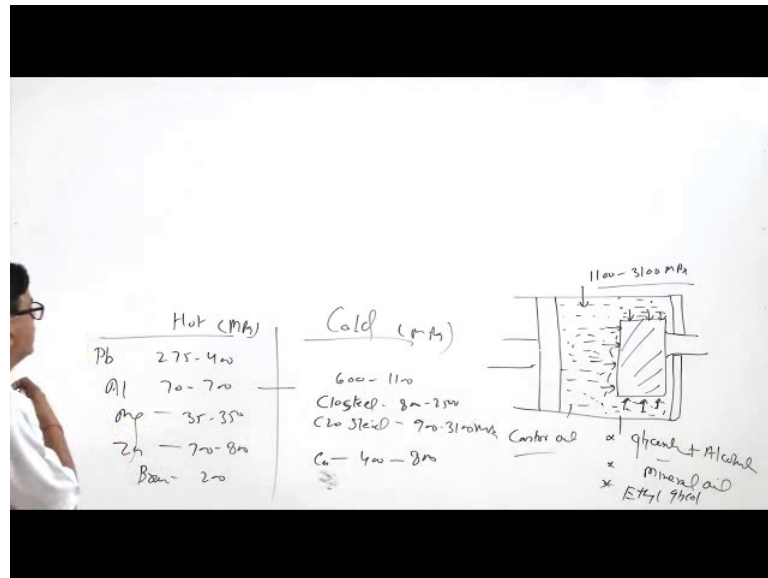 Hot (MPa)
Pb 275-400
Al 70-700
Mg - 35-350
Zn - 700-800
- 200
Cold (MPa)
600-1100
C10 steel - 800-2500
C20 steel - 900-3100 MPa
Cu - 400-800
1100-3100 MPa
Castor oil
+ Alcohol
* mineral oil
* Ethyl glycol